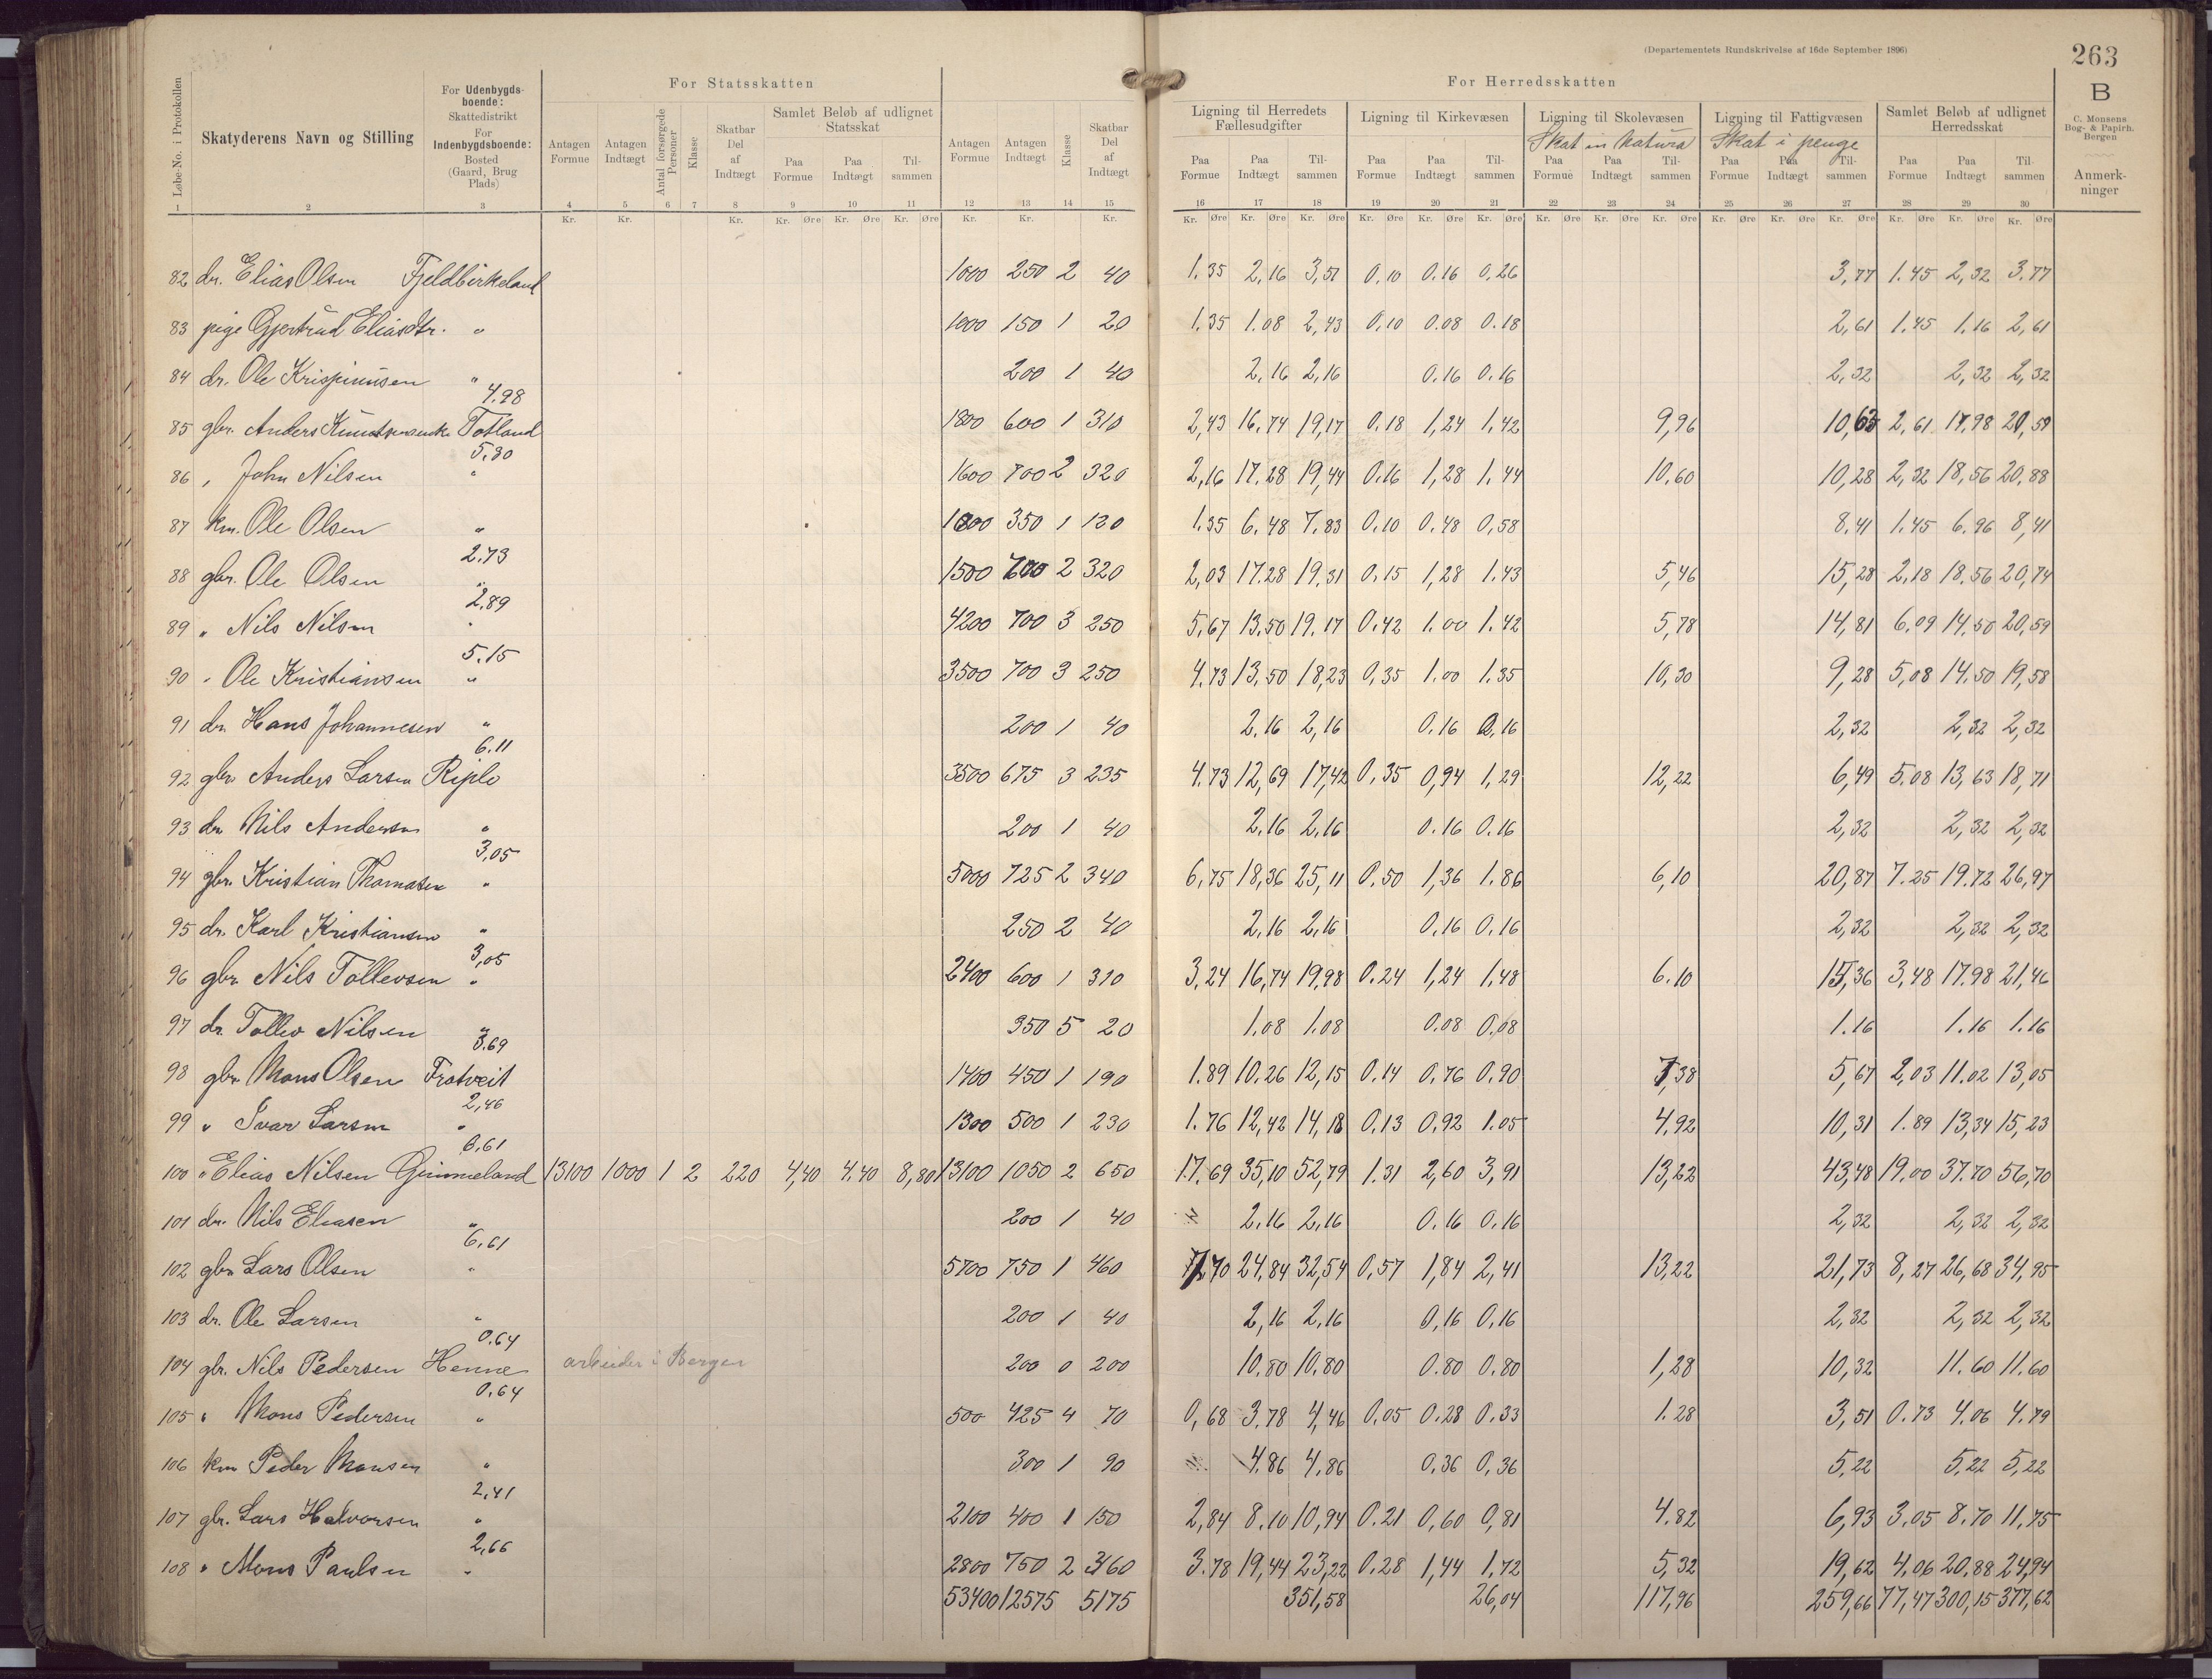 (Departementets Rundskrivelse af 16de September 1896)
263
B
C. Monsens Bog- & Papirh. Bergen
For Statsskatten
For Herredsskatten
Løbe-No. i Protokollen
Skatyderens Navn og Stilling
For Udenbygdsboende: Skattedistrikt For Indenbygdsboende: Bosted (Gaard, Brug Plads)
Antagen Formue
Antagen Indtægt
Antal forsørgede Personer
Klasse
Skatbar Del af Indtægt
Samlet Beløb af udlignet Statsskat
Paa Formue Paa Indtægt Tilsammen
Antagen Formue
Antagen Indtægt
Klasse
Skatbar Del af Indtægt
Ligning til Herredets Fællesudgifter
Paa Formue Paa Indtægt Tilsammen
Ligning til Kirkevæsen
Paa Formue Paa Indtægt Tilsammen
Ligning til Skolevæsen
Skat in Natura
Paa Formue Paa Indtægt Tilsammen
Ligning til Fattigvæsen
Skat i penge
Paa Formue Paa Indtægt Tilsammen
Samlet Beløb af udlignet Herredsskat
Paa Formue Paa Indtægt Tilsammen
Anmerkninger
1 2 3 4 5 6 7 8 9 10 11 12 13 14 15 16 17 18 19 20 21 22 23 24 25 26 27 28 29 30
Kr. Kr. Kr. Kr. Øre Kr. Øre Kr. Øre Kr. Kr. Kr. Kr. Øre Kr. Øre Kr. Øre Kr. Øre Kr. Øre Kr. Øre Kr. Øre Kr. Øre Kr. Øre Kr. Øre Kr. Øre Kr. Øre Kr. Øre Kr. Øre Kr. Øre
82 dr. Elias Olsen Fjeldbirkeland 1000 250 2 40 1.35 2,16 3,51 0,10 0.16 0,26 3,77 1.45 2,32 3.77
83 pige Gjertrud Eliasdtr. " 1000 150 1 20 1.35 1.08 2,43 0,10 0.08 0.18 2,61 1.45 1.16 2,61
84 dr. Ole Krispinusen " 200 1 40 2,16 2,16 0.16 0.16 2,32 2,32 2,32
4.98
85 gbr. Anders Knutsen Totland 1800 600 1 310 2,43 16,74 19,17 0.18 1,24 1.42 9,96 10,63 2,61 17.98 20,59
5,30
86 " John Nilsen " 1600 700 2 320 2,16 17.28 19,44 0.16 1,28 1.44 10.60 10,28 2,32 18,56 20.88
87 km. Ole Olsen " 1000 350 1 120 1.35 6.48 7.83 0.10 0.48 0,58 8.41 1.45 6.96 8,41
2.73
88 gbr. Ole Olsen " 1500 700 2 320 2,03 17.28 19.31 0.15 1,28 1.43 5,46 15,28 2,18 18,56 20,74
2.89
89 " Nils Nilsen " 4200 700 3 250 5.67 13.50 19.17 0.42 1.00 1.42 5,78 14,81 6.09 14,50 20,59
5.15
90 " Ole Kristiansen " 3500 700 3 250 4.73 13,50 18,23 0,35 1.00 1.35 10,30 9,28 5,08 14.50 19,58
91 dr. Hans Johannesen " 200 1 40 2.16 2,16 0.16 0.16 2,32 2,32 2,32
6.11
92 gbr. Anders Larsen Riple 3500 675 3 235 4.73 12,69 17,42 0.35 0,94 1,29 12,22 6,49 5.08 13,63 18,71
93 dr. Nils Andersen " 200 1 40 2.16 2.16 0.16 0.16 2,32 2,32 2,32
3,05
94 gbr. Kristian Thomasen " 5000 725 2 340 6,75 18,36 25,11 0.50 1,36 1.86 6,10 20,87 7.25 19.72 26,97
95 dr. Karl Kristiansen " 250 2 40 2,16 2,16 0.16 0.16 2,32 2,32 2,32
3,05
96 gbr Nils Tollevsen " 2400 600 1 310 3,24 16,74 19,98 0.24 1,24 1,48 6.10 15,36 3,48 17.98 21,46
97 dr Tollev Nilsen " 350 5 20 1.08 1.08 0.08 0.08 1.16 1.16 1.16
3.69
98 gbr Mons Olsen Frotveit 1400 450 1 190 1.89 10.26 12,15 0.14 0,76 0.90 7,38 5,67 2,03 11.02 13,05
2,46
99 " Ivar Larsen " 1300 500 1 230 1.76 12,42 14,18 0.13 0.92 1.05 4,92 10,31 1.89 13,34 15,23
6.61
100 " Elias Nilsen Gimmeland 13100 1000 1 2 220 4,40 4.40 8,80 13100 1050 2 650 17.69 35,10 52,79 1.31 2,60 3,91 13,22 43,48 19.00 37.70 56,70
101 dr. Nils Eliasen " 200 1 40 2,16 2,16 0.16 0.16 2,32 2,32 2,32
6,61
102 gbr Lars Olsen " 5700 750 1 460 7,70 24,84 32,54 0,57 1,84 2,41 13,22 21,73 8,27 26,68 34,95
103 dr. Ole Larsen " 200 1 40 2,16 2,16 0,16 0,16 2,32 2,32 2,32
0.64
104 gbr. Nils Pedersen Henne arbeider i Bergen 200 0 200 10,80 10.80 0.80 0.80 1,28 10,32 11.60 11.60
0.64
105 " Mons Pedersen " 500 425 4 70 0,68 3.78 4,46 0.05 0.28 0.33 1.28 3,51 0.73 4.06 4.79
106 km Peder Monsen " 300 1 90 4,86 4,86 0,36 0,36 5,22 5,22 5,22
2,41
107 gbr. Lars Halvorsen " 2100 400 1 150 2,84 8.10 10,94 0.21 0,60 0,81 4.82 6,93 3.05 8.70 11.75
2,66
108 " Mons Paulsen " 2800 750 2 360 3.78 19,44 23,22 0.28 1,44 1,72 5,32 19,62 4.06 20,88 24,94
53400 12575 5175 351,58 26,04 117,96 259,66 77,47 300,15 377,62